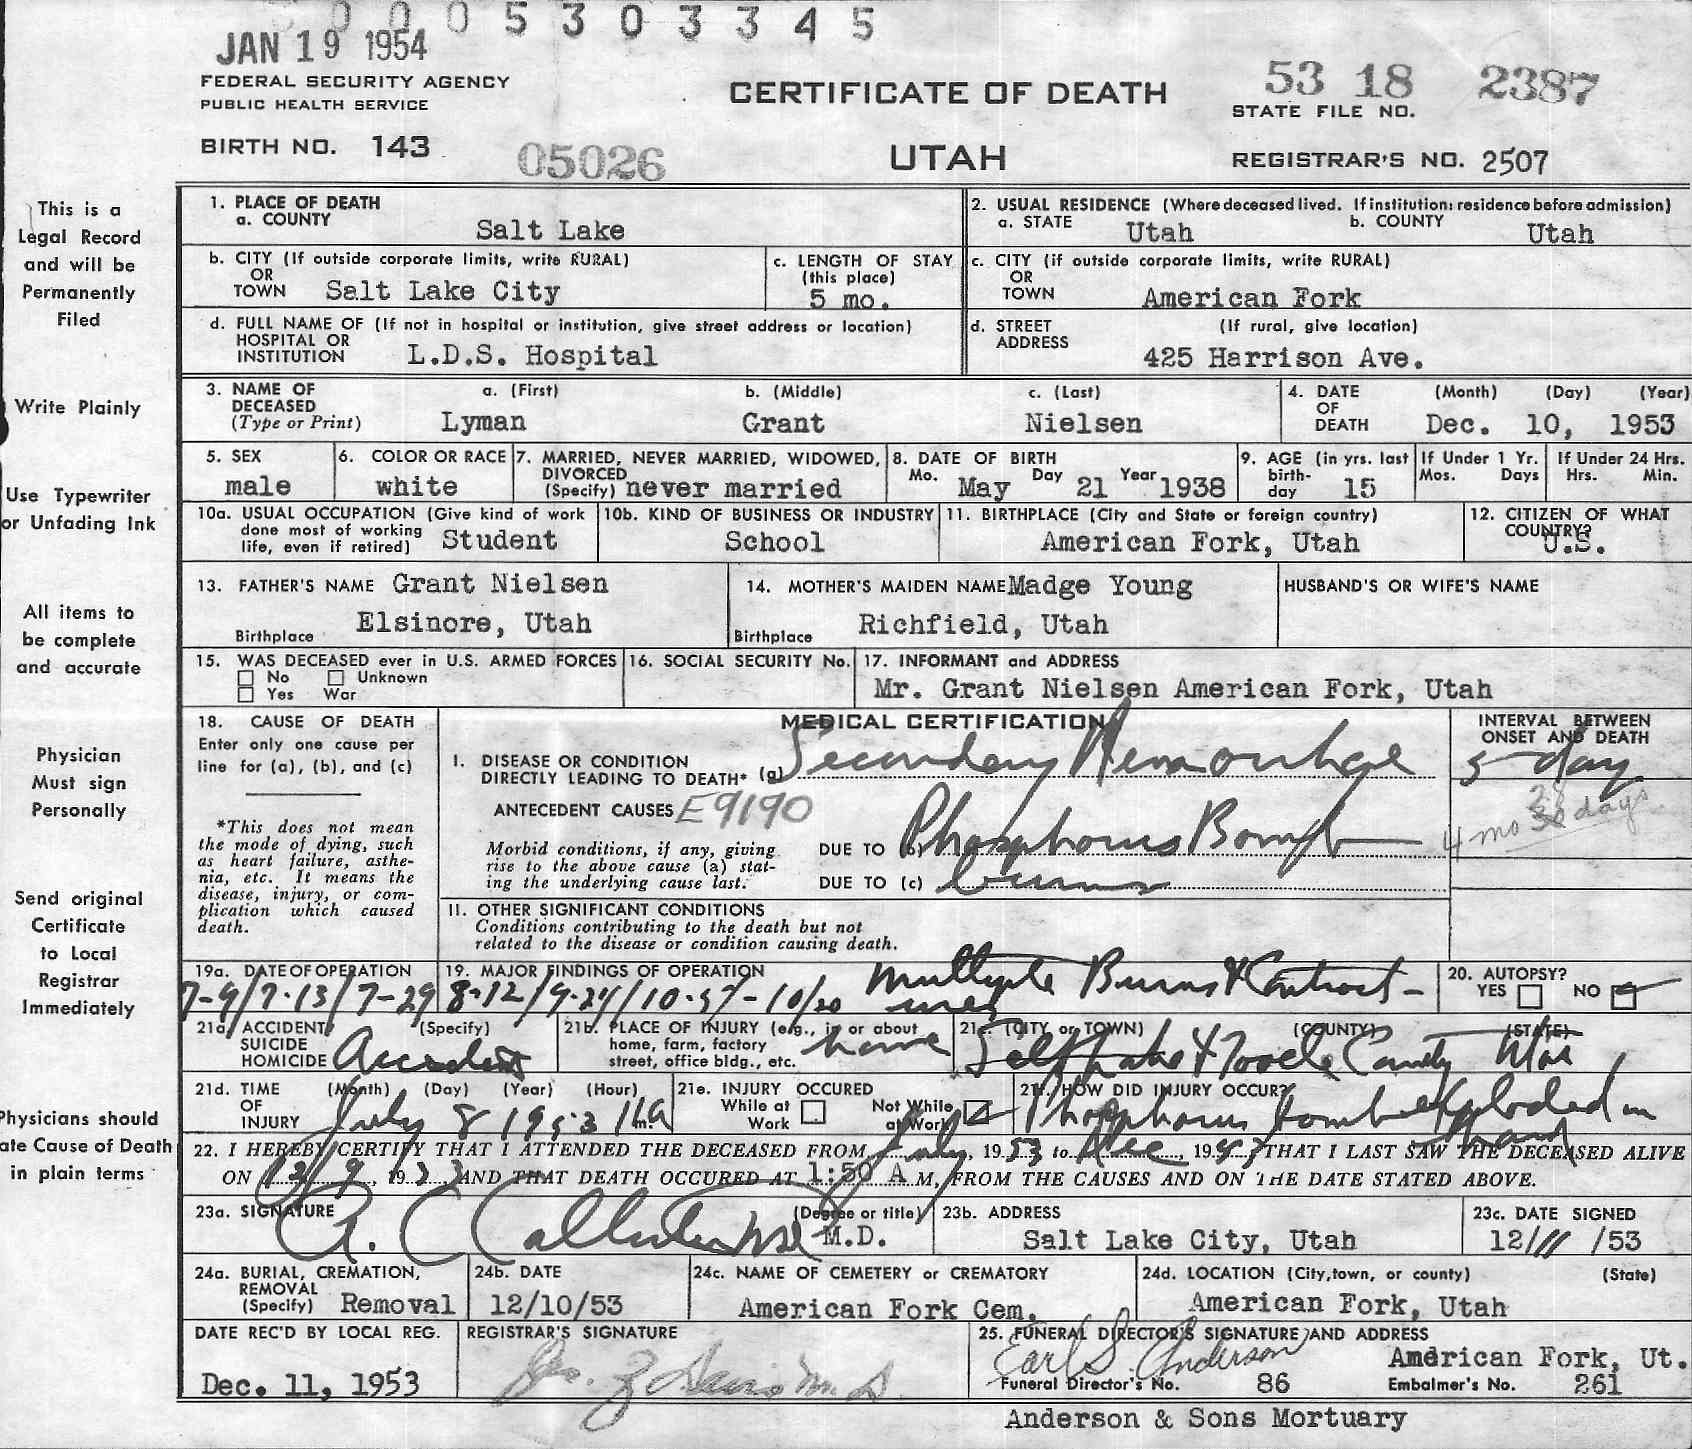 0005303345
JAN 19 1954
FEDERAL SECURITY AGENCY
PUBLIC HEALTH SERVICE
BIRTH NO. 143
05026
CERTIFICATE OF DEATH
UTAH
53 18 2387
STATE FILE NO.
REGISTRAR'S NO. 2507
This is a
Legal Record
and will be
Permanently
Filed
Write Plainly
Use Typewriter
or Unfading Ink
All items to
be complete
and accurate
Physician
Must sign
Personally
Send original
Certificate
to Local
Registrar
Immediately
Physicians should
ate Cause of Death
in plain terms
1. PLACE OF DEATH
a. COUNTY
Salt Lake
2. USUAL RESIDENCE (Where deceased lived. If institution: residence before admission)
a. STATE Utah b. COUNTY Utah
b. CITY (If outside corporate limits, write RURAL)
OR
TOWN Salt Lake City
c. LENGTH OF STAY
(this place)
5 mo.
c. CITY (if outside corporate limits, write RURAL)
OR
TOWN American Fork
d. FULL NAME OF (If not in hospital or institution, give street address or location)
HOSPITAL OR
INSTITUTION L.D.S. Hospital
d. STREET (If rural, give location)
ADDRESS
425 Harrison Ave.
3. NAME OF a. (First) b. (Middle) c. (Last)
DECEASED
(Type or Print) Lyman Grant Nielsen
4. DATE (Month) (Day) (Year)
OF
DEATH Dec. 10, 1953
5. SEX
male
6. COLOR OR RACE
white
7. MARRIED, NEVER MARRIED, WIDOWED,
DIVORCED
(Specify) never married
8. DATE OF BIRTH
Mo. May Day 21 Year 1938
9. AGE (in yrs. last
birth-
day 15
If Under 1 Yr.
Mos. Days
If Under 24 Hrs.
Hrs. Min.
10a. USUAL OCCUPATION (Give kind of work
done most of working
life, even if retired) Student
10b. KIND OF BUSINESS OR INDUSTRY
School
11. BIRTHPLACE (City and State or foreign country)
American Fork, Utah
12. CITIZEN OF WHAT
COUNTRY?
U.S.
13. FATHER'S NAME Grant Nielsen
Birthplace Elsinore, Utah
14. MOTHER'S MAIDEN NAME Madge Young
Birthplace Richfield, Utah
HUSBAND'S OR WIFE'S NAME
15. WAS DECEASED ever in U.S. ARMED FORCES
No Unknown
Yes War
16. SOCIAL SECURITY No.
17. INFORMANT and ADDRESS
Mr. Grant Nielsen American Fork, Utah
18. CAUSE OF DEATH
Enter only one cause per
line for (a), (b), and (c)
*This does not mean
the mode of dying, such
as heart failure, asthe-
nia, etc. It means the
disease, injury, or com-
plication which caused
death.
MEDICAL CERTIFICATION
I. DISEASE OR CONDITION
DIRECTLY LEADING TO DEATH* (a) Secondary Hemorrhage
ANTECEDENT CAUSES E9190
Morbid conditions, if any, giving
rise to the above cause (a) stat-
ing the underlying cause last.
DUE TO (b) Phosphorus Bomb
DUE TO (c) burns
INTERVAL BETWEEN
ONSET AND DEATH
5 day
4 mo days
II. OTHER SIGNIFICANT CONDITIONS
Conditions contributing to the death but not
related to the disease or condition causing death.
19a. DATE OF OPERATION
7-9/7-13/7-29
19. MAJOR FINDINGS OF OPERATION
8-12/9-24/10-5 - 10/20 Multiple Burns & Contract-
ures
20. AUTOPSY?
YES NO
21a. ACCIDENT (Specify)
SUICIDE
HOMICIDE Accident
21b. PLACE OF INJURY (e.g., in or about
home, farm, factory
street, office bldg., etc. home
21c. (CITY or TOWN) (COUNTY) (STATE)
Salt Lake & Tooele County Utah
21d. TIME (Month) (Day) (Year) (Hour)
OF
INJURY July 8 1953 11 a m.
21e. INJURY OCCURED
While at Work Not While at Work
21f. HOW DID INJURY OCCUR?
Phosphorus bomb exploded in
hand
22. I HEREBY CERTIFY THAT I ATTENDED THE DECEASED FROM July, 1953 to Dec, 1953 THAT I LAST SAW THE DECEASED ALIVE
ON 12 9, 1953 AND THAT DEATH OCCURED AT 1:50 A M, FROM THE CAUSES AND ON THE DATE STATED ABOVE.
23a. SIGNATURE (Degree or title)
A. C. Callister M.D.
23b. ADDRESS
Salt Lake City, Utah
23c. DATE SIGNED
12/11/53
24a. BURIAL, CREMATION,
REMOVAL
(Specify) Removal
24b. DATE
12/10/53
24c. NAME OF CEMETERY or CREMATORY
American Fork Cem.
24d. LOCATION (City, town, or county) (State)
American Fork, Utah
DATE REC'D BY LOCAL REG.
Dec. 11, 1953
REGISTRAR'S SIGNATURE
25. FUNERAL DIRECTOR'S SIGNATURE AND ADDRESS
Earl S. Anderson American Fork, Ut.
Funeral Director's No. 86 Embalmer's No. 261
Anderson & Sons Mortuary